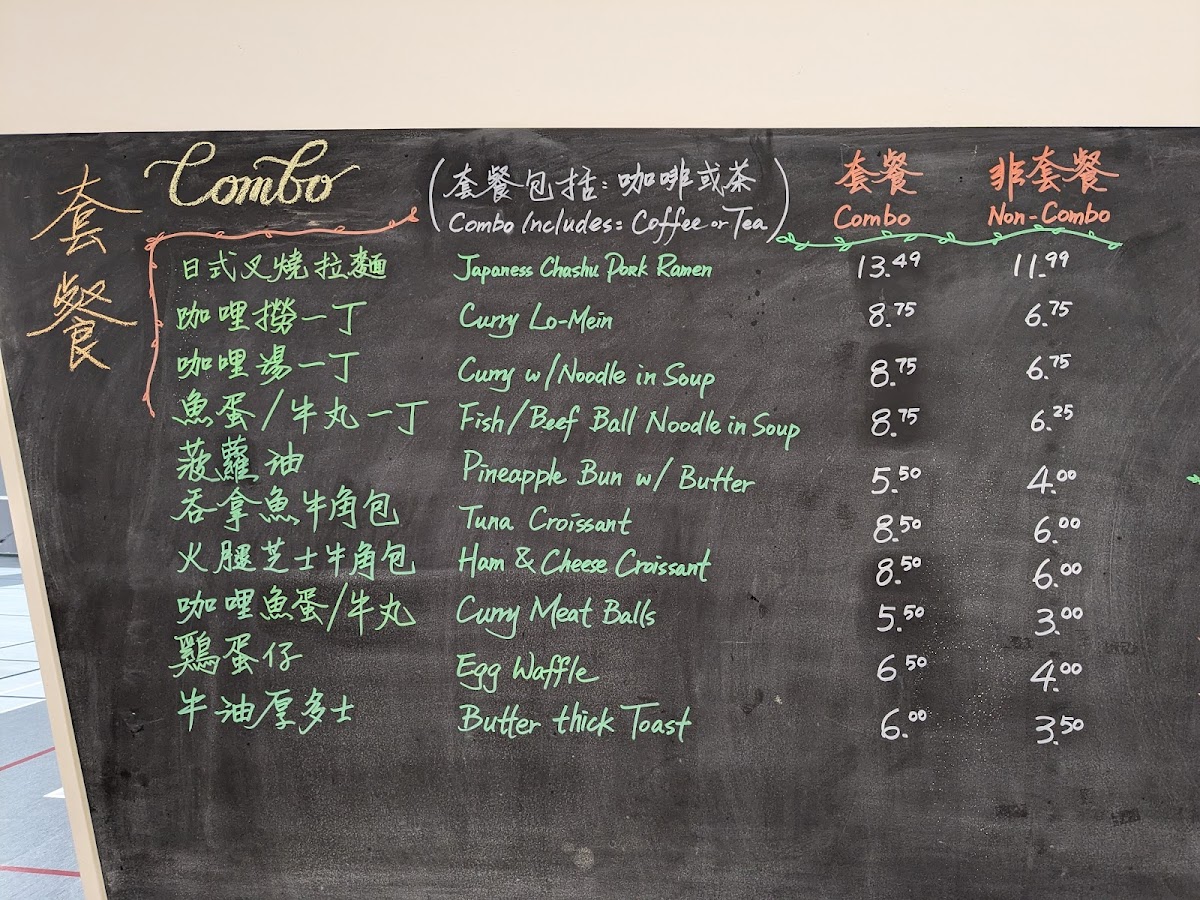 套餐
Combo
(套餐包括: 咖啡或茶)
(Combo Includes: Coffee or Tea)
套餐 非套餐
Combo Non-Combo
日式叉燒拉麵 Japaness Chashu Pork Ramen 13.49 11.99
咖哩撈一丁 Curry Lo-Mein 8.75 6.75
咖哩湯一丁 Curry w/Noodle in Soup 8.75 6.75
魚蛋/牛丸一丁 Fish/Beef Ball Noodle in Soup 8.75 6.25
菠蘿油 Pineapple Bun w/ Butter 5.50 4.00
吞拿魚牛角包 Tuna Croissant 8.50 6.00
火腿芝士牛角包 Ham & Cheese Croissant 8.50 6.00
咖哩魚蛋/牛丸 Curry Meat Balls 5.50 3.00
鷄蛋仔 Egg Waffle 6.50 4.00
牛油厚多士 Butter thick Toast 6.00 3.50